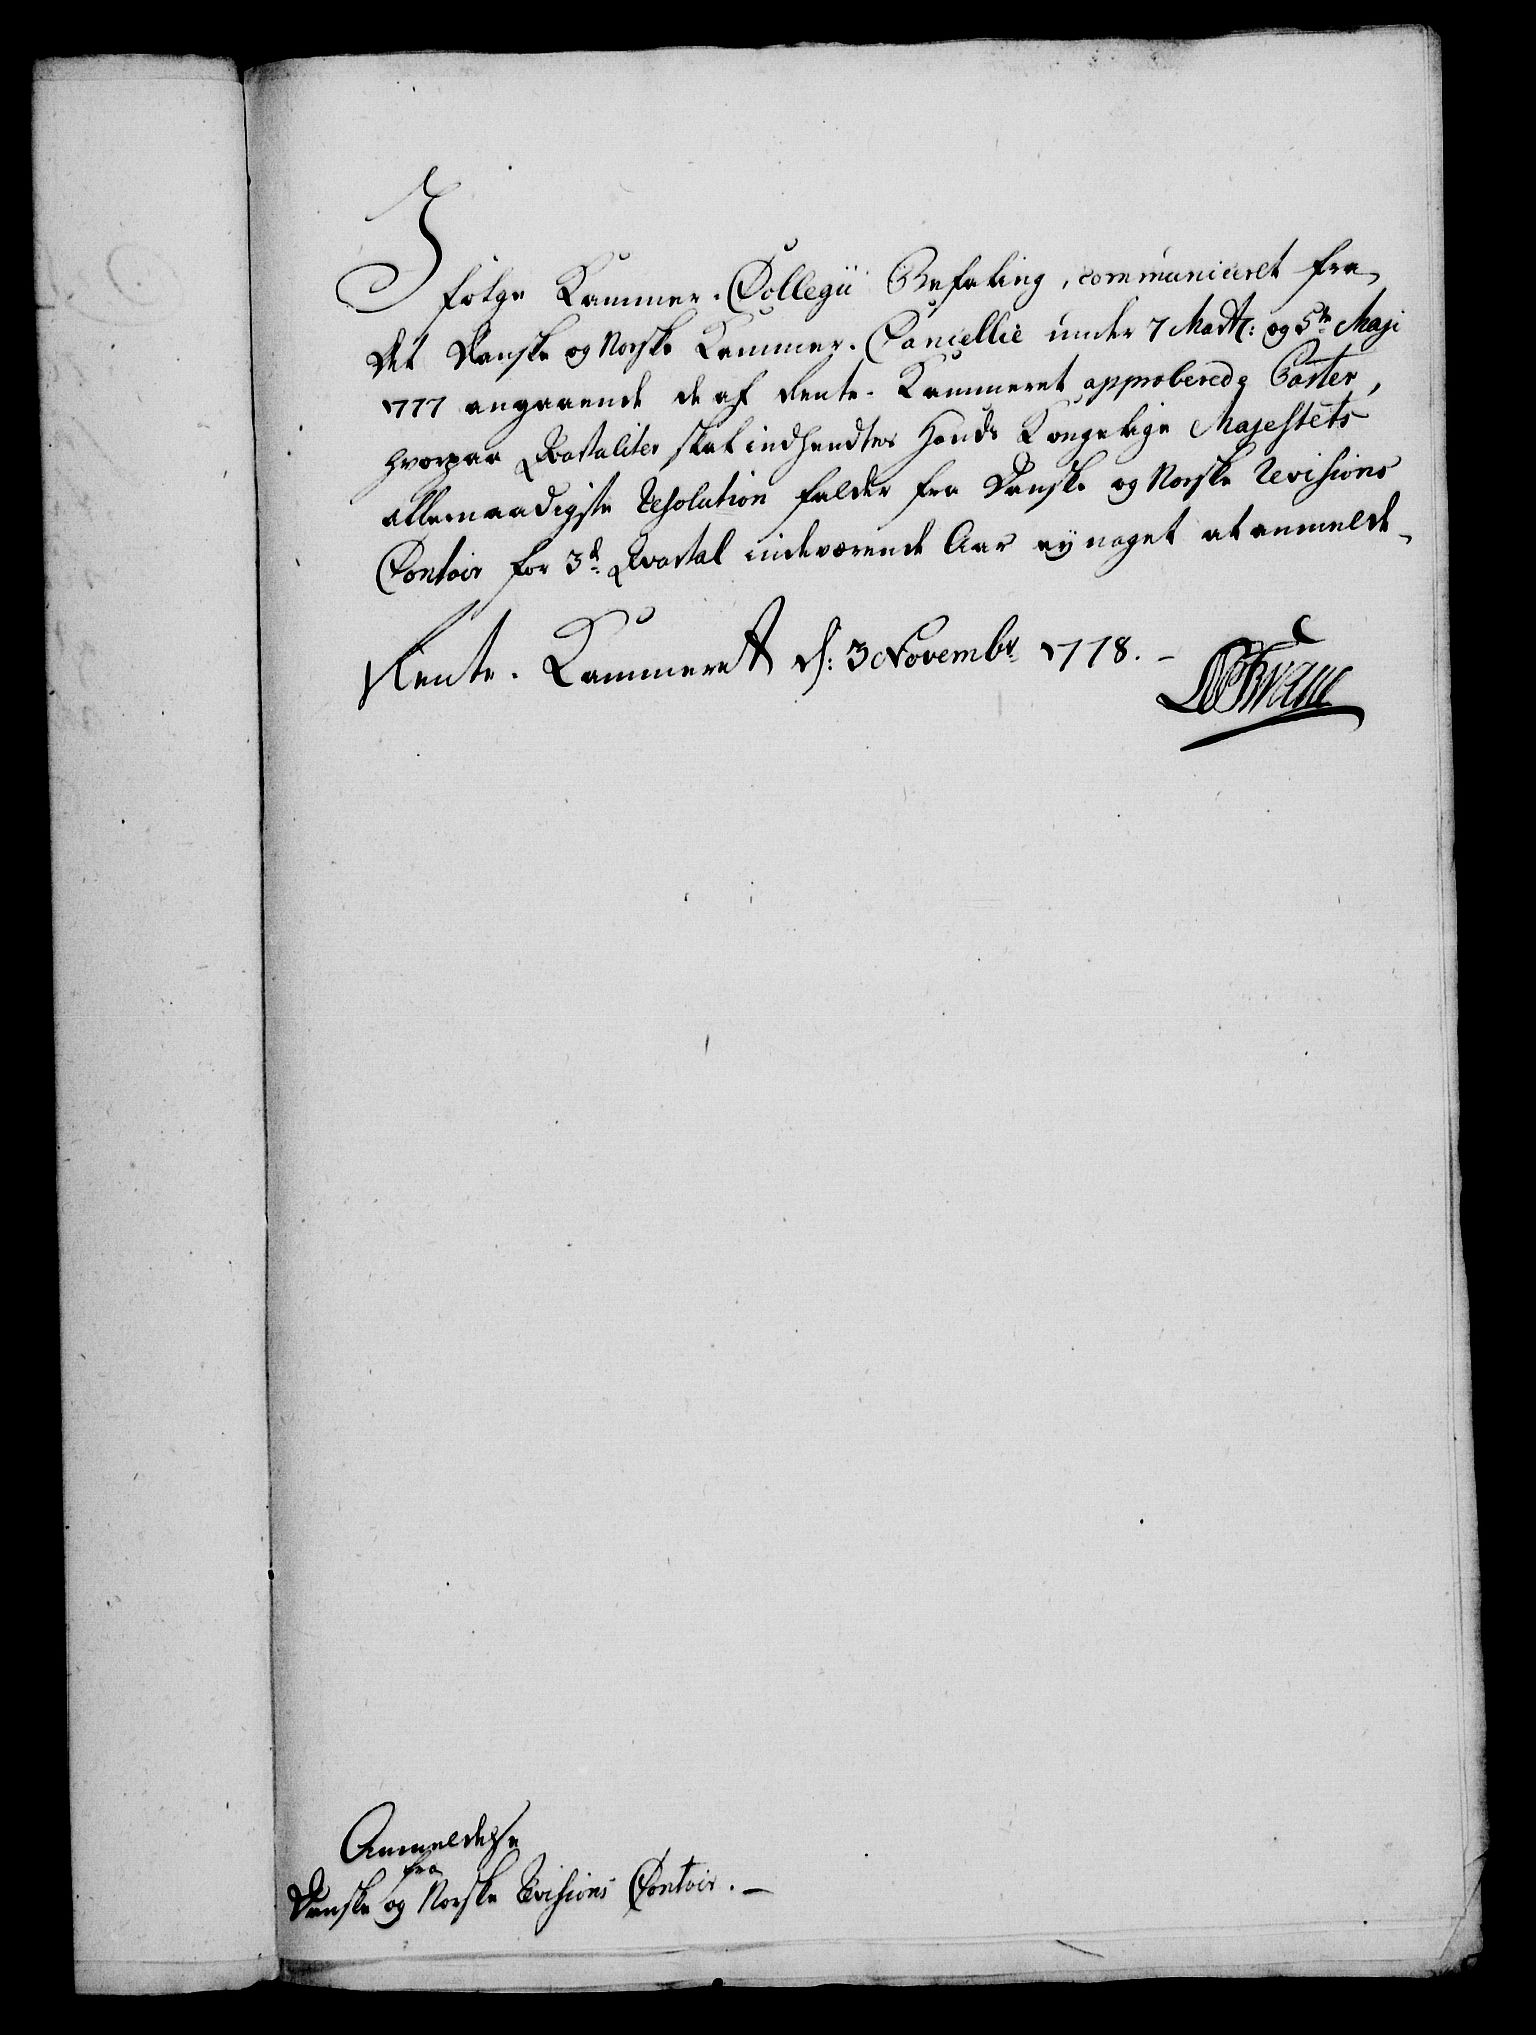 I
følge Kammer-Collegii Befaling, communiceret fra
det Danske og Norske Kammer-Cancellie under 7 Martz: og 5te Maji
1777 angaaende de af Rente-Kammeret approberede Poster,
hvorpaa Qvartaliter skal indhendtes Hands Kongelige Majestets
allernaadigste Resolution falder fra Danske og Norske Revisions
Contoir for 3d: Qvartal indeværende Aar ey noget at anmelde.
Rente-Kammeret d: 3 Novembr 1778. -
Anmeldelse
fra
Danske og Norske Revisions Contoir. -